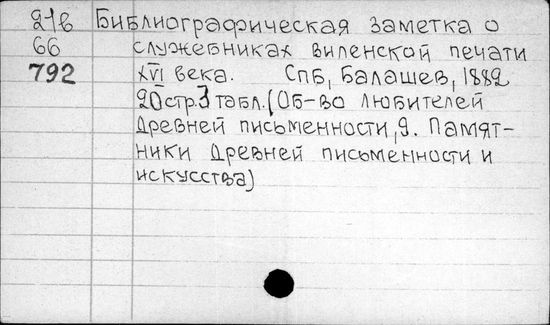 21в Библиографическая заметка о
66 служебниках виленской печати
792 XVI века. СПб, Балашев, 1882
20стр. 3 табл. (Об-во любителей
древней письменности, 9. Памят-
ники древней письменности и
искусства)